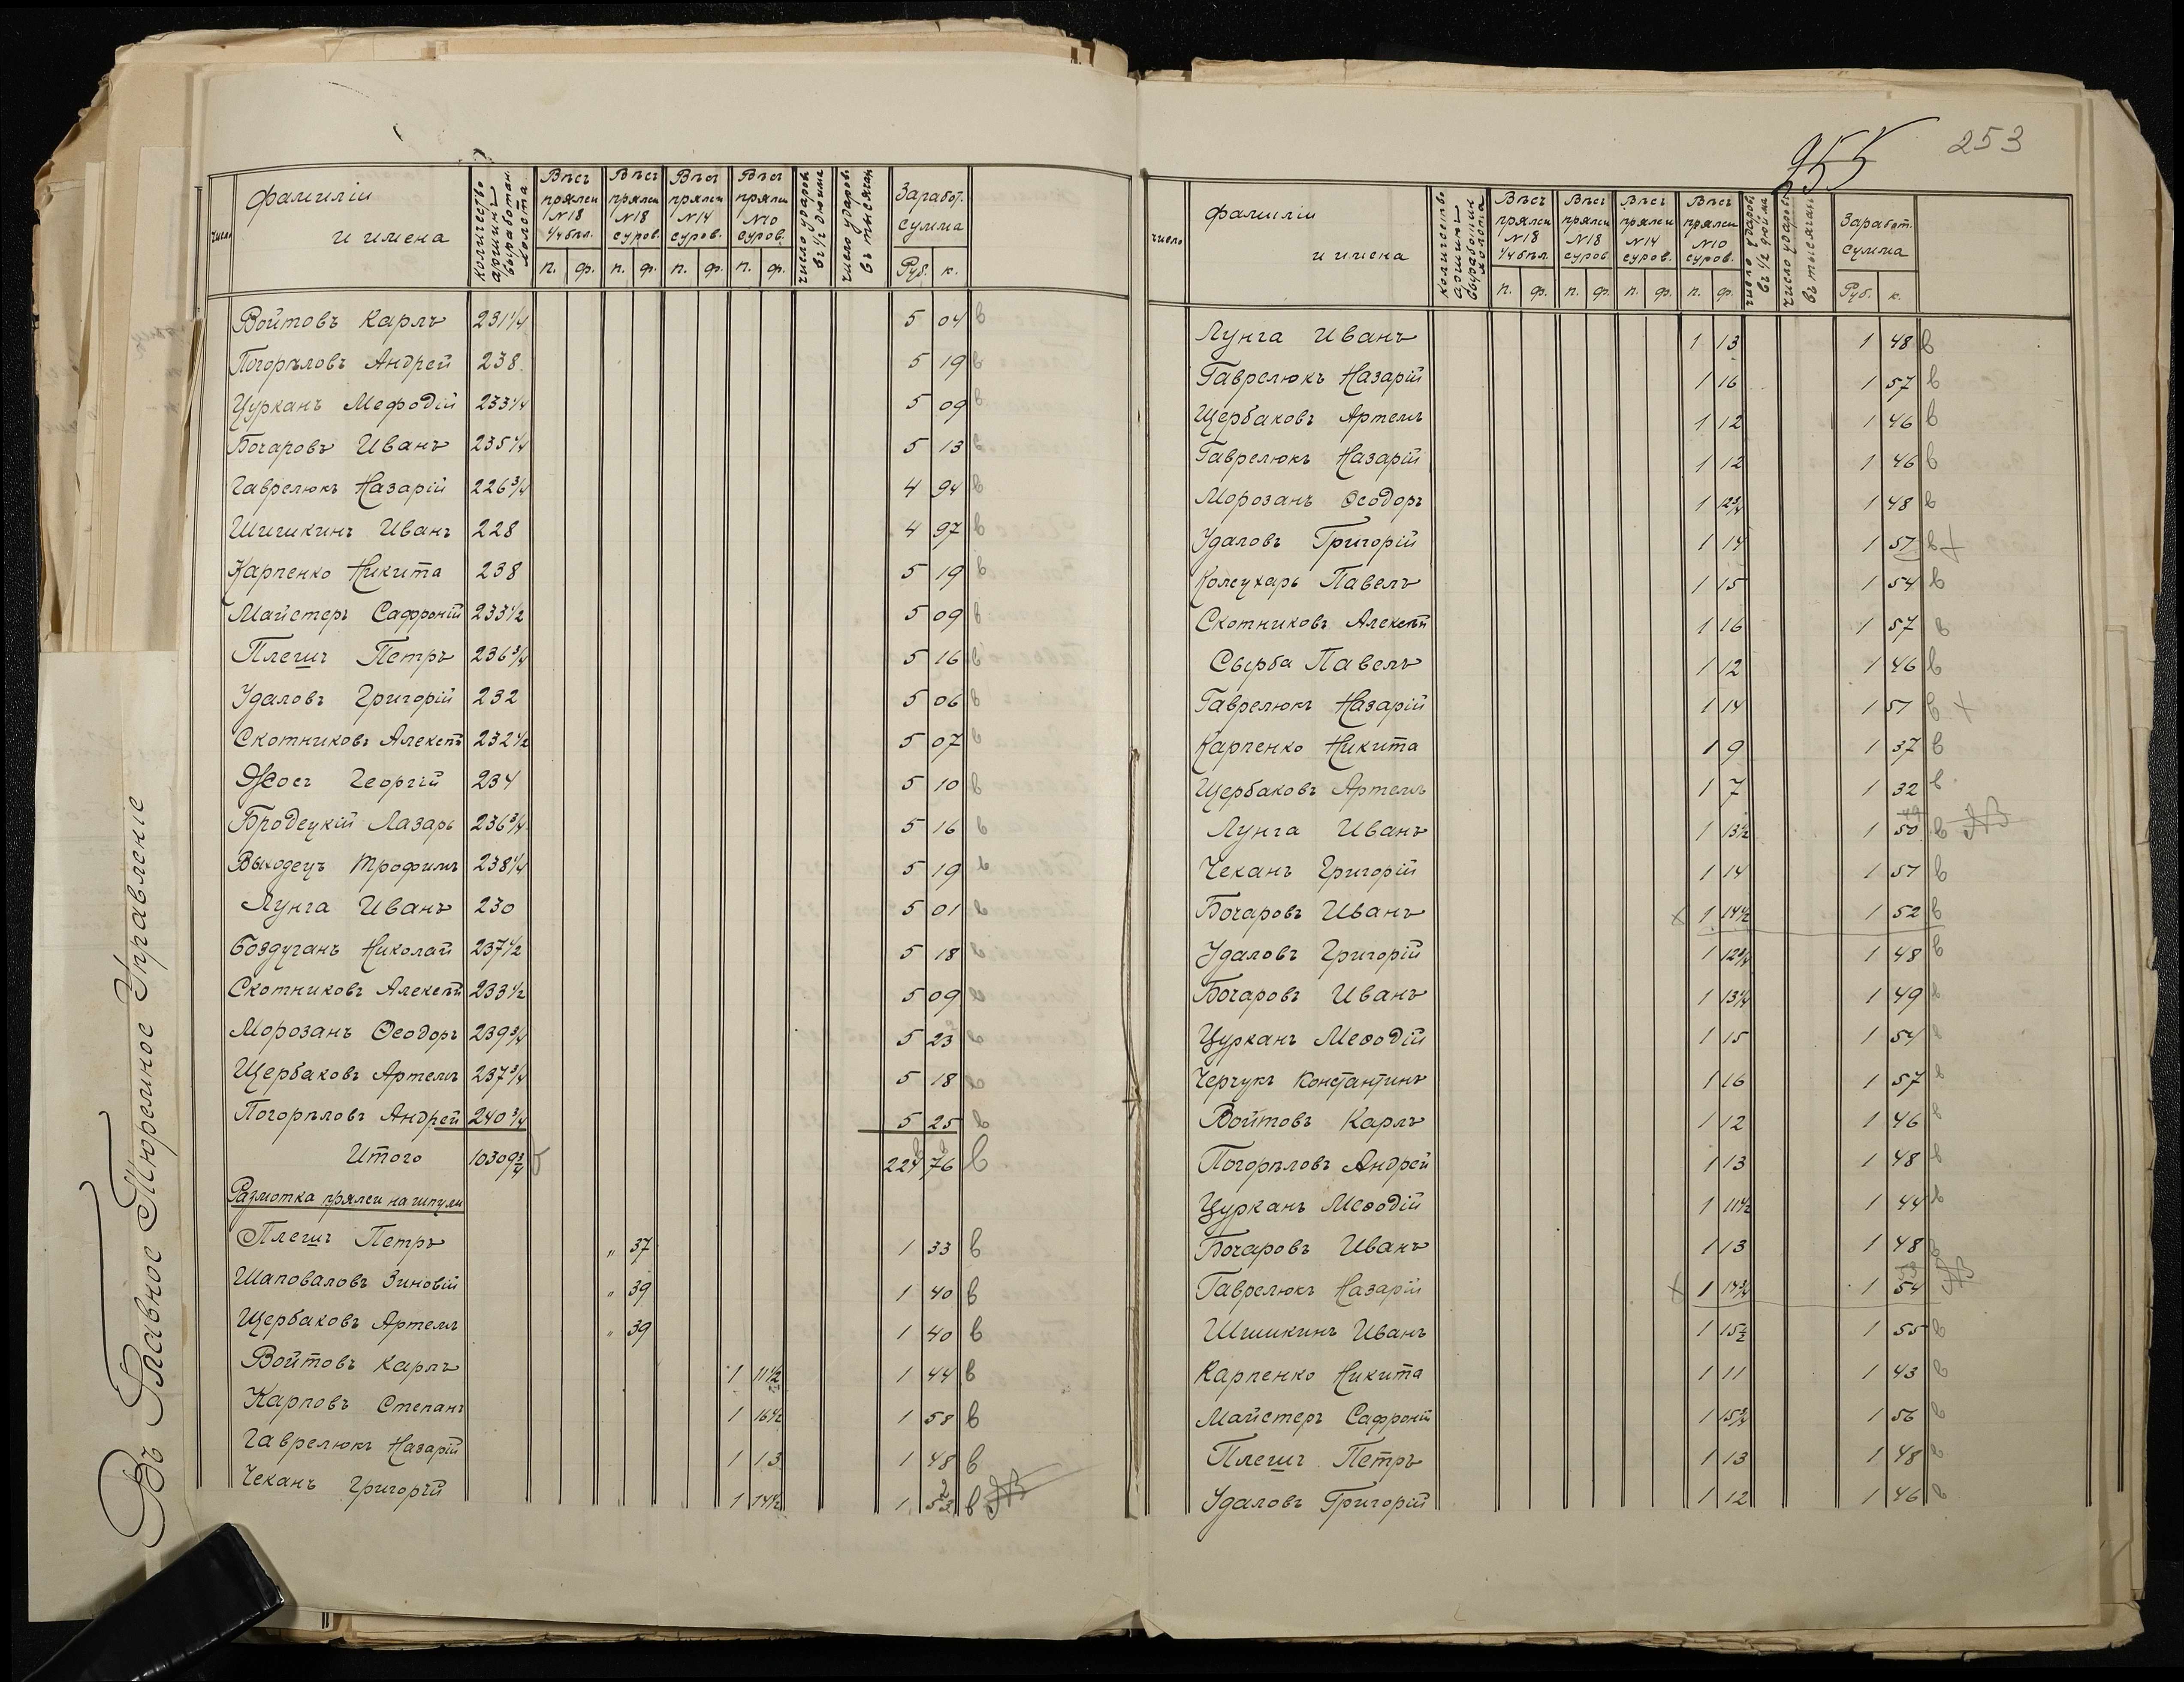 Въ Главное Тюремное Управленіе
число
фамиліи и имена
Количество аршинъ выработан. холста
Вѣсъ пряжи №18 1/4 бѣл. п. ф.
Вѣсъ пряжи №18 суров. п. ф.
Вѣсъ пряжи №14 суров. п. ф.
Вѣсъ пряжи №10 суров. п. ф.
число ударов. въ 1/2 дюйма
число ударов. въ тысячах
Заработ. сумма Руб. к.
Войтовъ Карлъ 231 1/4 5 04 в
Погорѣловъ Андрей 238 5 19 в
Цурканъ Мефодій 233 1/4 5 09 в
Бочаровъ Иванъ 235 1/4 5 13 в
Гаврелюкъ Назарій 226 3/4 4 94 в
Шишкинъ Иванъ 228 4 97 в
Карпенко Никита 238 5 19 в
Майстеръ Сафроній 233 1/2 5 09 в
Плешъ Петръ 236 3/4 5 16 в
Удаловъ Григорій 232 5 06 в
Скотниковъ Алексѣй 232 1/2 5 07 в
Жосъ Георгій 234 5 10 в
Бродецкій Лазарь 236 3/4 5 16 в
Выходецъ Трофимъ 238 1/4 5 19 в
Лунга Иванъ 230 5 01 в
Боздуганъ Николай 237 1/2 5 18 в
Скотниковъ Алексѣй 233 1/2 5 09 в
Морозанъ Ѳеодоръ 239 3/4 5 23 в
Щербаковъ Артемъ 237 3/4 5 18 в
Погорѣловъ Андрей 240 3/4 5 25 в
Итого 10309 3/4 224 76 в
Размотка пряжи на шпули
Плешъ Петръ „ 37 1 33 в
Шаповаловъ Зиновій „ 39 1 40 в
Щербаковъ Артемъ „ 39 1 40 в
Войтовъ Карлъ 1 11 1/2 1 44 в
Карповъ Степанъ 1 16 1/2 1 58 в
Гаврелюкъ Назарій 1 13 1 48 в
Чеканъ Григорій 1 14 1/2 1 53 в
255 253
число
фамиліи и имена
Количество аршинъ выработанн. холста
Вѣсъ пряжи №18 1/4 бѣл. п. ф.
Вѣсъ пряжи №18 суров. п. ф.
Вѣсъ пряжи №14 суров. п. ф.
Вѣсъ пряжи №10 суров. п. ф.
число ударов. въ 1/2 дюйма
число ударов. въ тысячах
Заработ. сумма Руб. к.
Лунга Иванъ 1 13 1 48 в
Гаврелюкъ Назарій 1 16 1 57 в
Щербаковъ Артемъ 1 12 1 46 в
Гаврелюкъ Назарій 1 12 1 46 в
Морозанъ Ѳеодоръ 1 12 3/4 1 48 в
Удаловъ Григорій 1 14 1 51 в +
Колсухарь Павелъ 1 15 1 54 в
Скотниковъ Алексѣй 1 16 1 57 в
Сырба Павелъ 1 12 1 46 в
Гаврелюкъ Назарій 1 14 1 51 в +
Карпенко Никита 1 9 1 37 в
Щербаковъ Артемъ 1 7 1 32 в
Лунга Иванъ 1 13 1/2 1 50 в
Чеканъ Григорій 1 14 1 51 в
Бочаровъ Иванъ 1 14 1/2 1 52 в
Удаловъ Григорій 1 12 3/4 1 48 в
Бочаровъ Иванъ 1 13 1/4 1 49 в
Цурканъ Меѳодій 1 15 1 54 в
Черчукъ Константинъ 1 16 1 57 в
Войтовъ Карлъ 1 12 1 46 в
Погорѣловъ Андрей 1 13 1 48 в
Цурканъ Меѳодій 1 11 1/2 1 44 в
Бочаровъ Иванъ 1 13 1 48 в
Гаврелюкъ Назарій 1 14 3/4 1 54
Шишкинъ Иванъ 1 15 1/2 1 55 в
Карпенко Никита 1 11 1 43 в
Майстеръ Сафроній 1 15 3/4 1 56 в
Плешъ Петръ 1 13 1 48 в
Удаловъ Григорій 1 12 1 46 в